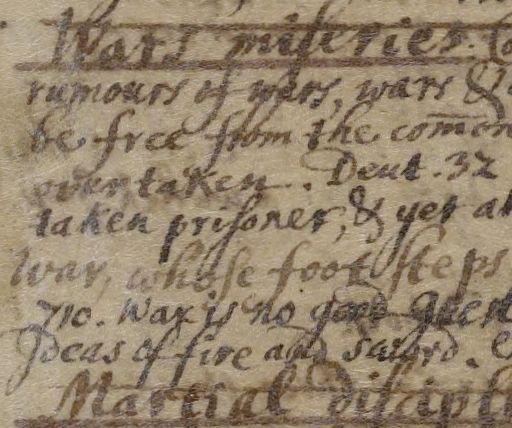 Wars miseries. (
rumours of wars, wars &
be free from the comōn
overtaken. Deut. 32
taken prisoner, & yet al
War, whose foot steps
710. War is no good Guest
Ideas of fire and sword.
Martial discipli